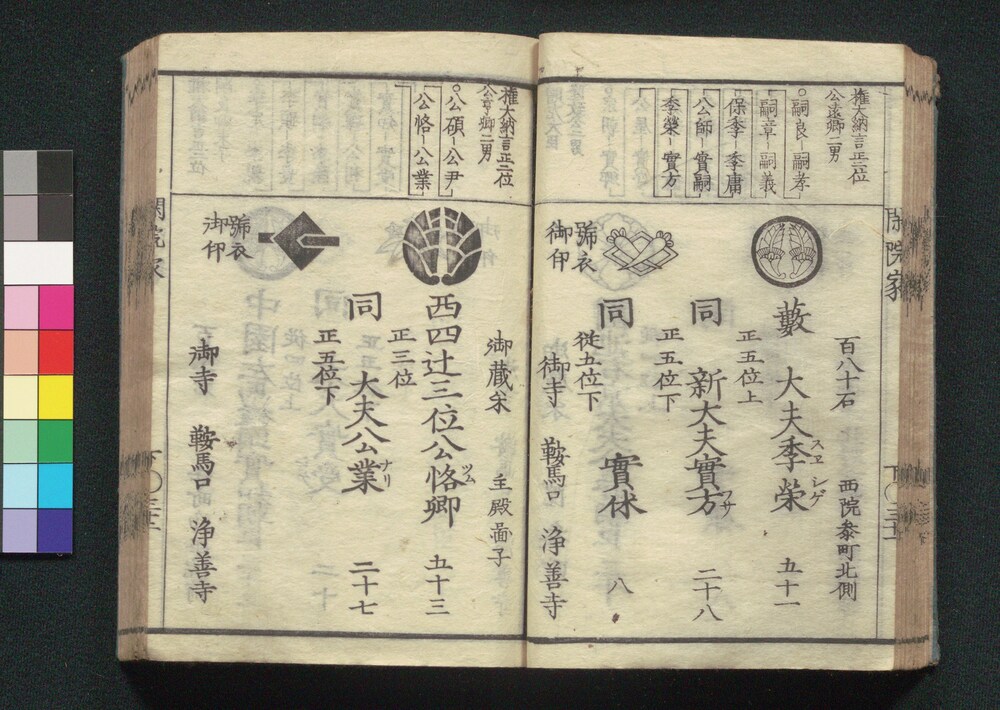 閑院家
權大納言正三位
公遠卿二男
嗣良ー嗣孝
嗣章ー嗣義
保季ー季庸
公師ー實嗣
季榮ー實方
百八十石
西院叅町北側
藪
正五位上
大夫季榮
スヱ シゲ
五十一
同
正五位下
新大夫實方
フサ
二十八
同
從五位下
實休
八
號衣
御印
御寺
鞍馬口
浄善寺
權大納言正三位
公亨卿二男
公碩ー公尹
公恪ー公業
御蔵米
主殿昌子
西四辻三位公恪卿
ツム
正三位
五十三
同
正五位下
大夫公業
ナリ
二十七
號衣
御印
御寺
鞍馬口
浄善寺
閑院家